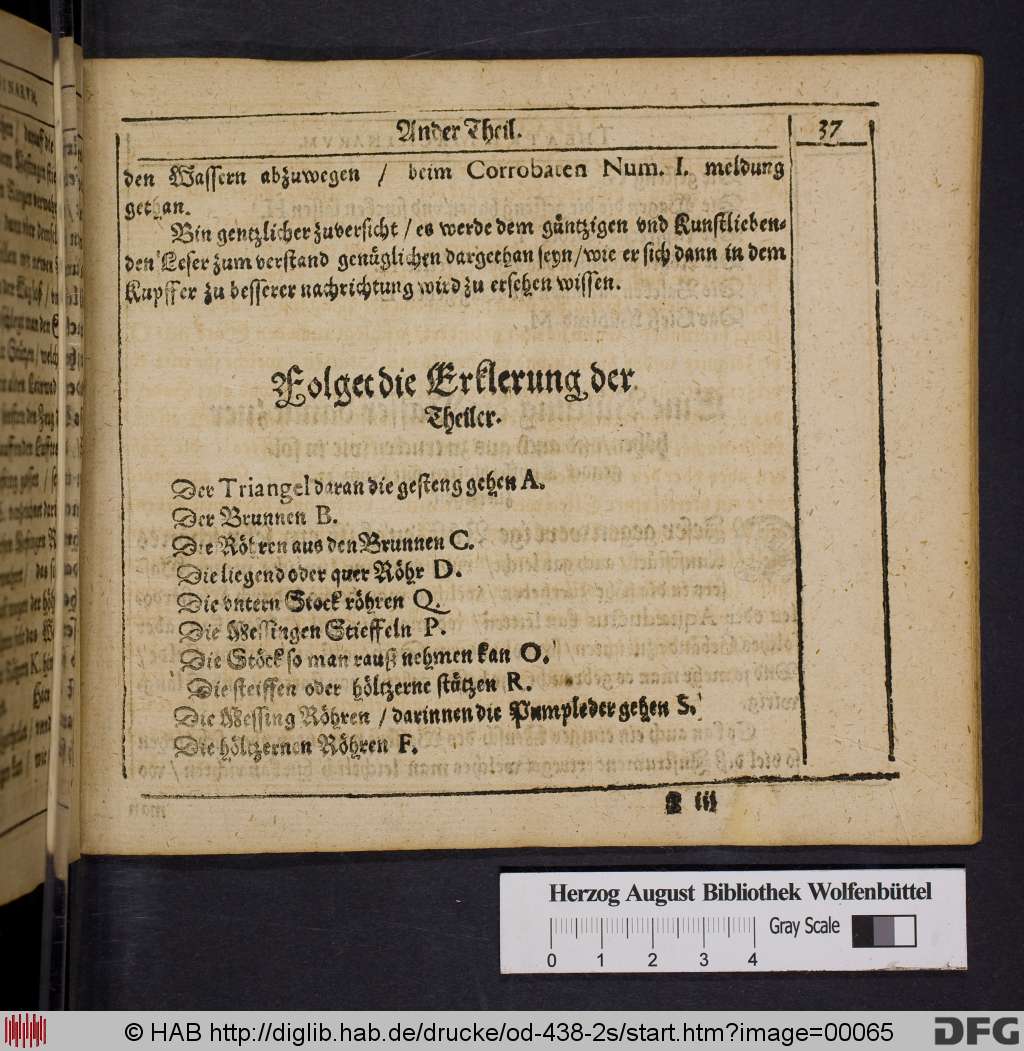 Ander Theil.
37
den Wassern abzuwegen / beim Corrobaten Num. I. meldung
gethan.
Bin gentzlicher zuversicht / es werde dem gäntzigen vnd Kunstlieben-
den Leser zum verstand genüglichen dargethan seyn / wie er sich dann in dem
Kupffer zu besserer nachrichtung wird zu ersehen wissen.
Folget die Erklerung der
Theiler.
Der Triangel daran die gesteng gehen A.
Der Brunnen B.
Die Röhren aus den Brunnen C.
Die liegend oder quer Röhr D.
Die vntern Stock röhren Q.
Die Messingen Stieffeln P.
Die Stöck so man rauß nehmen kan O.
Die steiffen oder höltzerne stützen R.
Die Messing Röhren / darinnen die Pumpleder gehen S.
Die höltzernen Röhren F.
iij
Herzog August Bibliothek Wolfenbüttel
Gray Scale
0 1 2 3 4
© HAB http://diglib.hab.de/drucke/od-438-2s/start.htm?image=00065
DFG